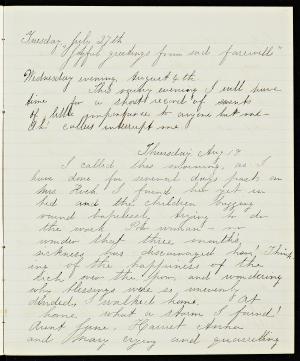 Tuesday, July 27th
"Joyful greetings from sad farewell"
Wednesday evening, August 4th
This rainy evening I will have
time for a short record of events
of little importance to anyone but me
callers interrupt me
Thursday Aug 12
I called this morning, as I
have done for several days past on
Mrs. I found her yet in
bed and the children
round helplessly trying to do
the work woman no
wonder that three months
sickness has discouraged her! Think
ing of the happiness of the
rich over the poor, and wondering
why blessings were so unevenly
divided, I walked home. At
home what a storm I found!
Aunt Jane, Harriet Anna
and Mary crying and quarreling